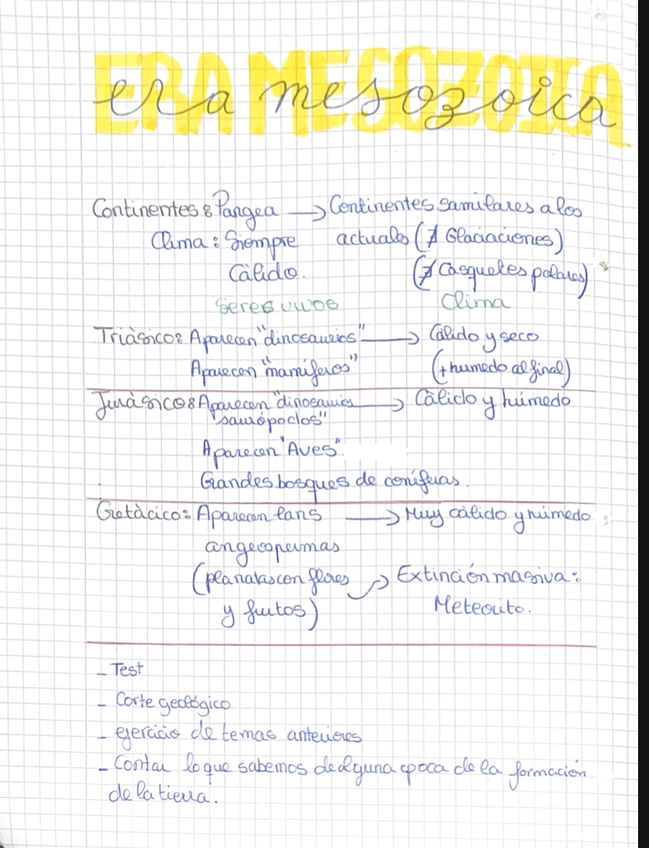 ERA MESOZOICA
era mesozoica
Continentes: Pangea → Continentes samilares a los
Clima: Siempre actuales (∄ Glaciaciones)
Càlido. (∄ Casquetes polares)
Seres vivos Clima
Triàsico: Aparecen "dinosaurios" → Càlido y seco
Aparecen "mamíferos" (+ humedo al final)
Juràsico: Aparecen "dinosaurios → Càlido y húmedo
saurópodos"
Aparecen "Aves"
Grandes bosques de coníferas.
Cretàcico: Aparecen lans → Muy càlido y húmedo
angeospermas
(planatas con flores → Extinción masiva:
y frutos) Meteorito.
- Test
- Corte geológico
- ejercicio de temas anteriores
- Contar lo que sabemos de alguna epoca de la formación
de la tierra.